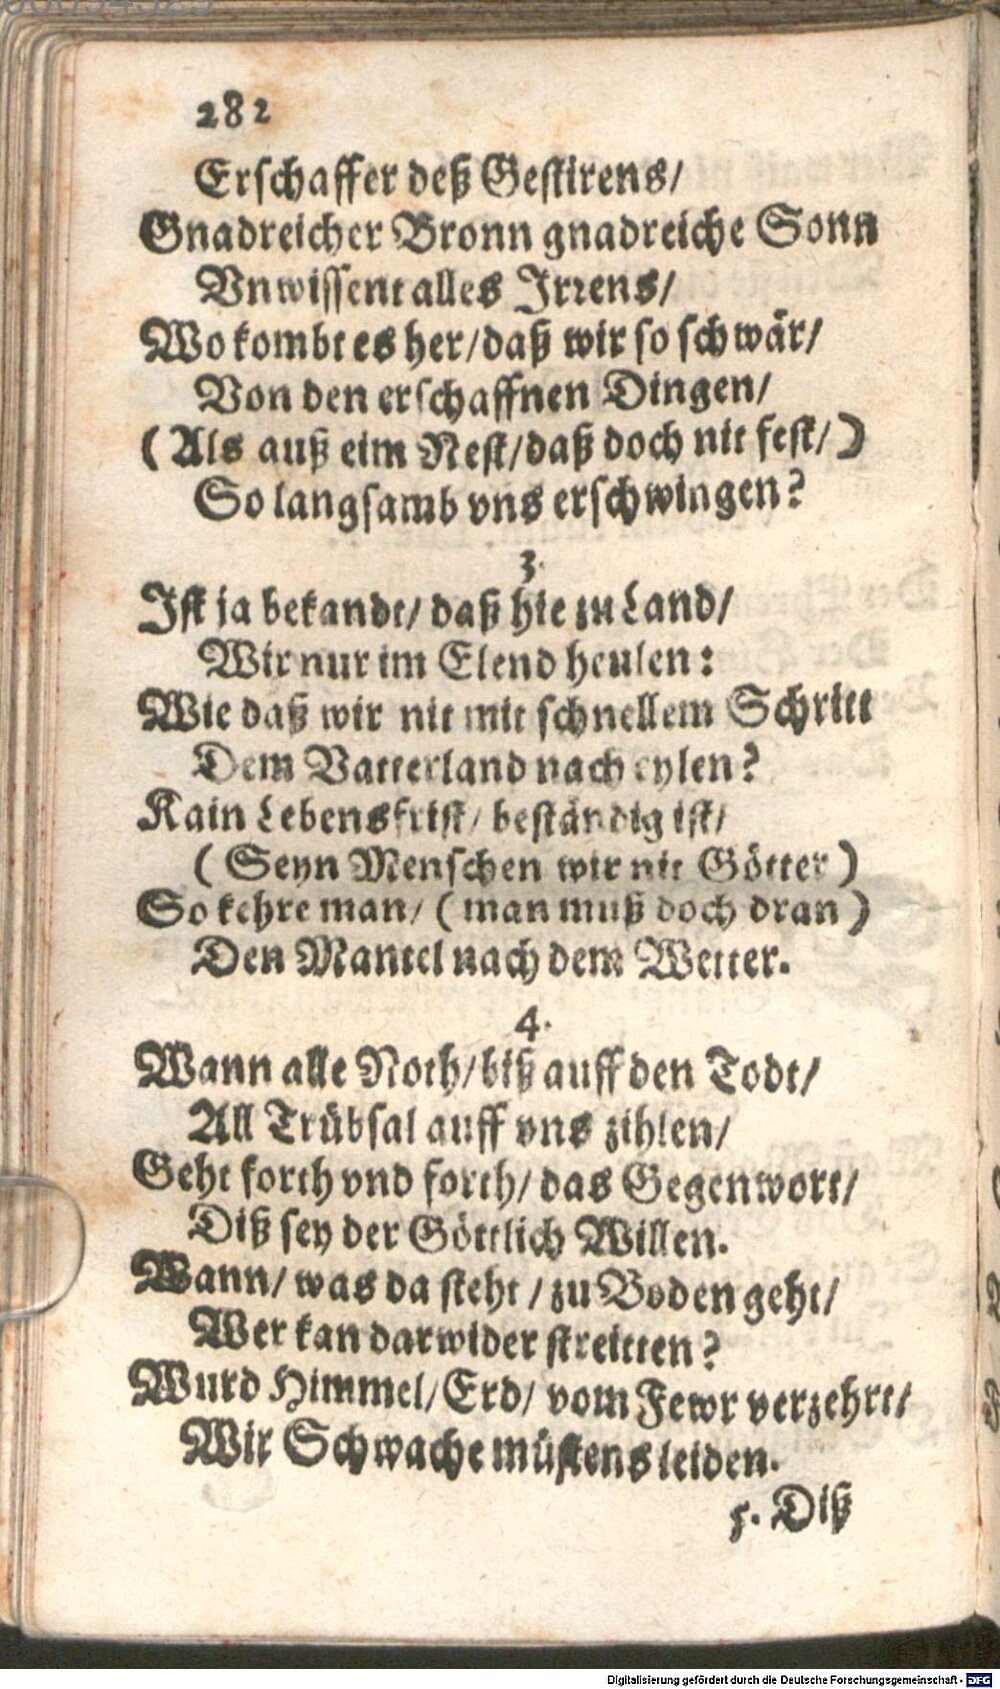 282
Erschaffer deß Gestirens/
Gnadreicher Bronn gnadreiche Sonn
Vnwissent alles Irrens/
Wo kombt es her/daß wir so schwär/
Von den erschaffnen Dingen/
(Als auß eim Nest/daß doch nit fest/)
So langsamb vns erschwingen?
3.
Ist ja bekandt/ daß hie zu Land/
Wir nur im Elend heulen:
Wie daß wir nit mit schnellem Schritt
Dem Vatterland nach eylen?
Kain Lebensfrist/ beständig ist/
(Seyn Menschen wir nit Götter)
So kehre man/ (man muß doch dran)
Den Mantel nach dem Wetter.
4.
Wann alle Noth/biß auff den Todt/
All Trübsal auff vns zihlen/
Geht forth vnd forth/ das Gegenwort/
Diß sey der Göttlich Willen.
Wann/ was da steht / zu Boden geht/
Wer kan darwider streitten?
Wurd Himmel/Erd/ vom Fewr verzehrt/
Wir Schwache müstens leiden.
5. Diß
Digitalisierung gefördert durch die Deutsche Forschungsgemeinschaft - DFG